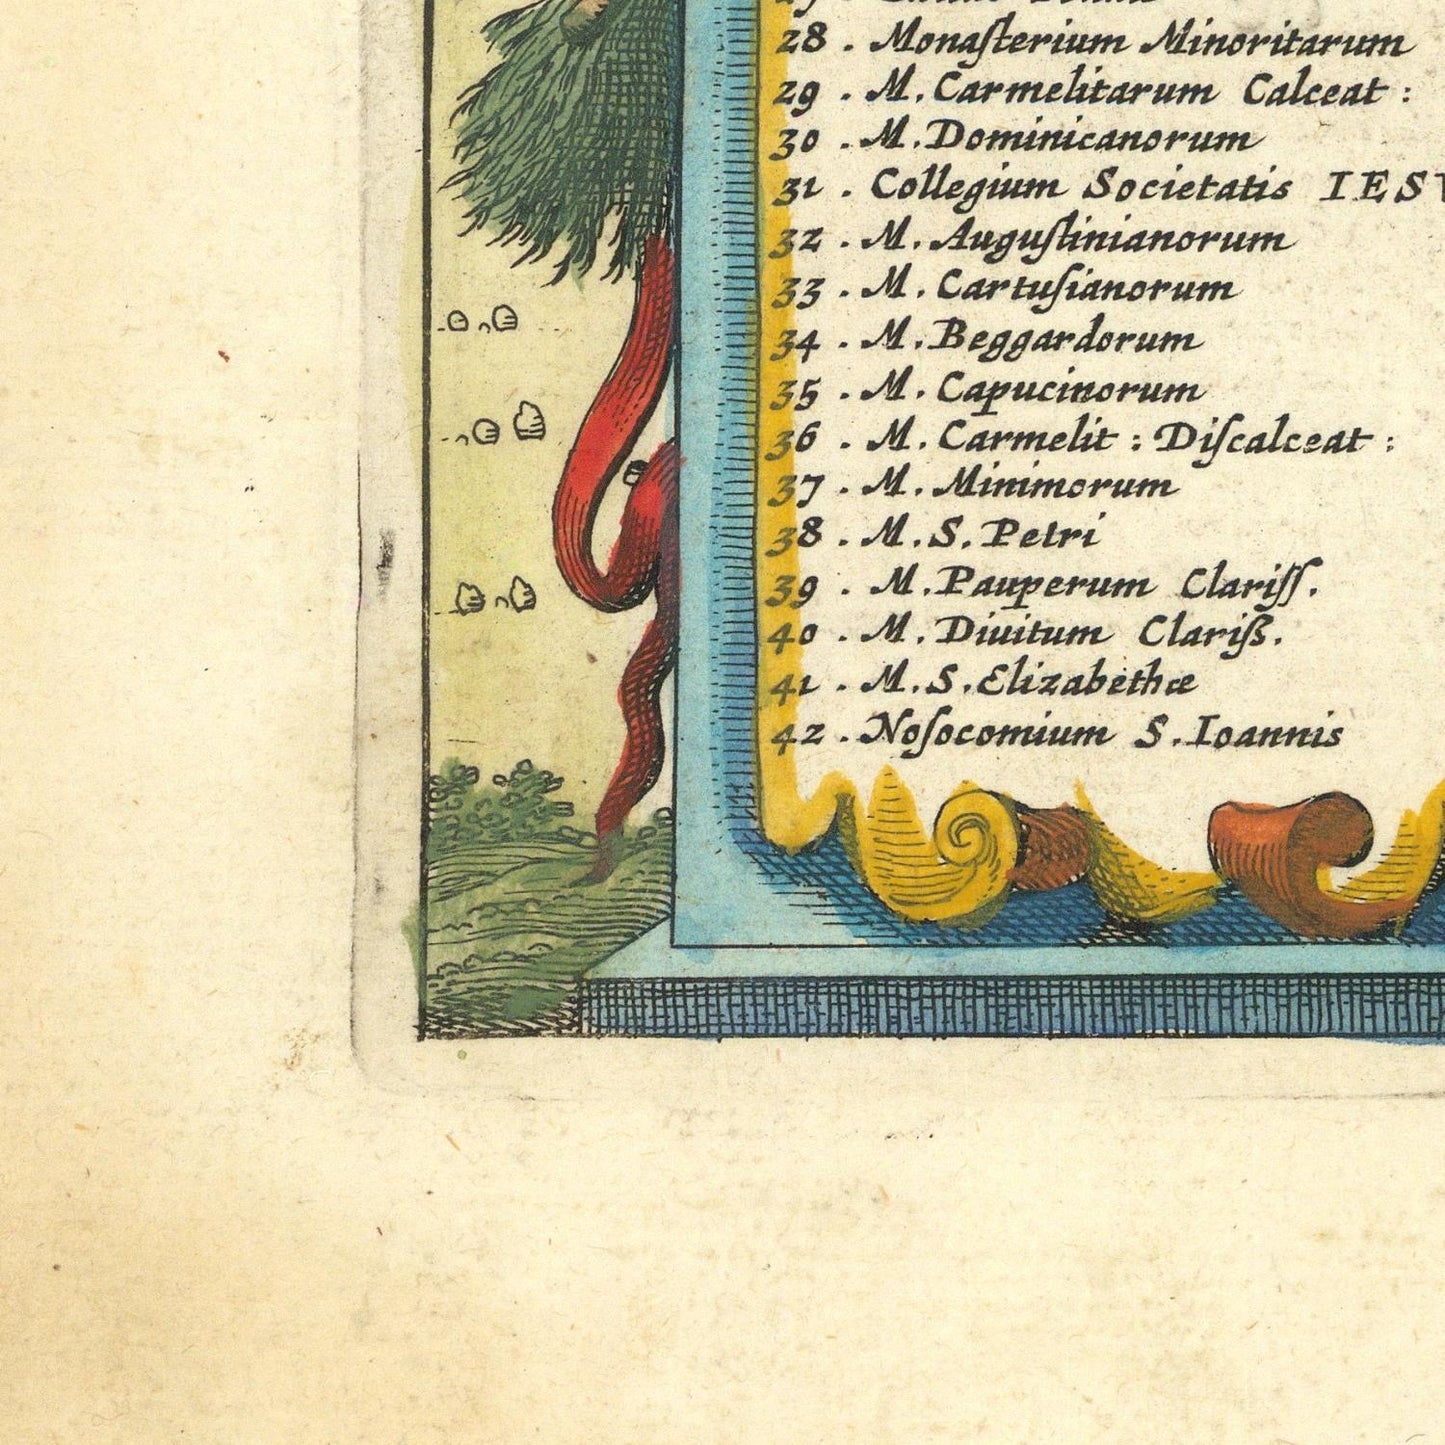 28 . Monaſterium Minoritarum
29 . M. Carmelitarum Calceat :
30 . M. Dominicanorum
31 . Collegium Societatis IESV
32 . M. Auguſtinianorum
33 . M. Cartuſianorum
34 . M. Beggardorum
35 . M. Capucinorum
36 . M. Carmelit : Diſcalceat :
37 . M. Minimorum
38 . M. S. Petri
39 . M. Pauperum Clariſſ.
40 . M. Diuitum Clariß.
41 . M. S. Elizabethæ
42 . Noſocomium S. Ioannis